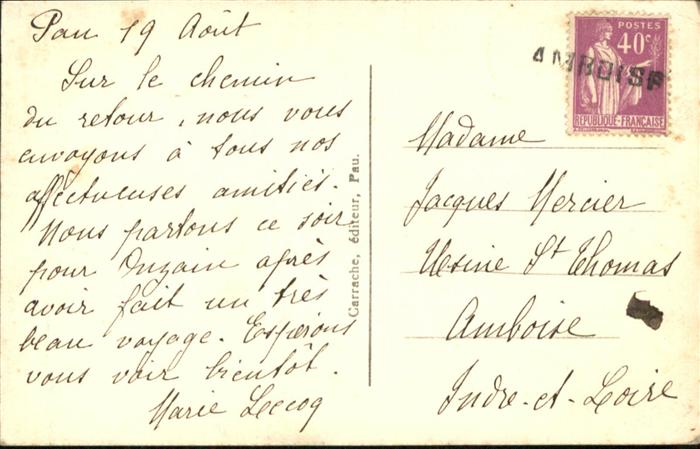 Pau 19 Août
Sur le chemin
du retour, nous vous
envoyons à tous nos
affectueuses amitiés.
Nous partons ce soir
pour Onzain après
avoir fait un très
beau voyage. Espérons
vous voir bientôt.
Marie Lecoq
Carrache, éditeur, Pau.
POSTES
40c
AMBOISE
RÉPUBLIQUE-FRANÇAISE
Madame
Jacques Mercier
Usine St Thomas
Amboise
Indre-et-Loire